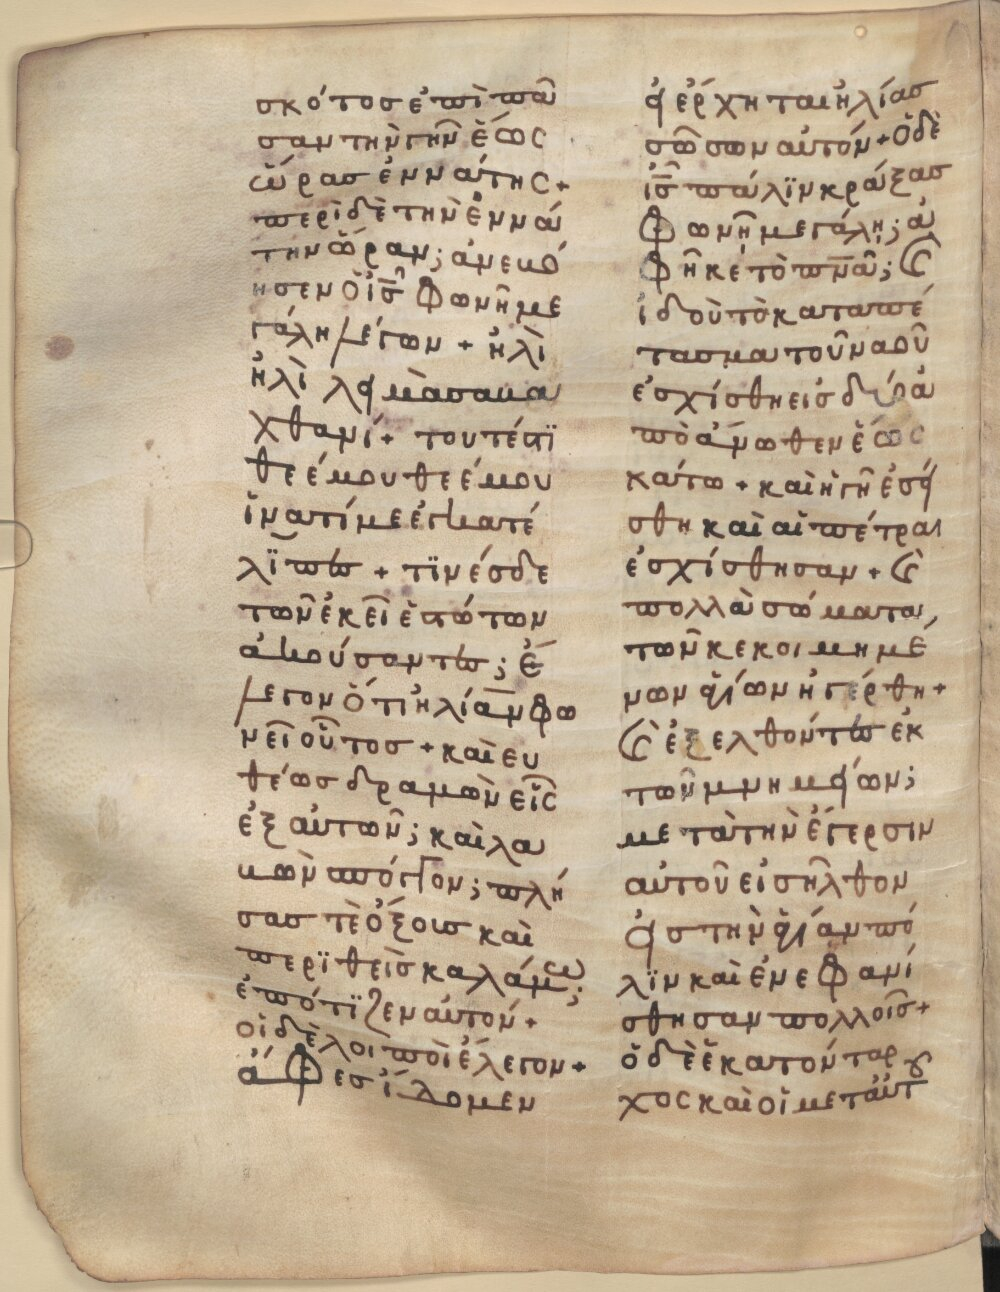 σκότος ἐπὶ πᾶ
σαν τὴν γῆν ἕως
ὥρας ἐννάτης +
περὶ δὲ τὴν ἐννά
την ὥραν; ἀνεβό
ησεν ὁ ἰς̅ φωνῆ με
γάλη λέγων + ἠλὶ
ἠλὶ λειμὰ σαβα
χθανί + τουτέστϊ
θεέ μου θεέ μου
ἱνατί με ἐγκατέ
λϊπες + τϊνές δε
τῶν ἐκεῖ ἑστώτων
ἀκούσαντες; ἔ
λεγον ὅτι ἠλίαν φω
νεῖ οὗτος + καὶ ευ
θέως δραμὼν εἷς
ἐξ αὐτῶν; καὶ λα
βὼν σπόγγον; πλή
σας τὲ ὄξους καὶ
περϊθεὶς καλάμω;
ἐπότϊζεν αὐτόν +
οἱ δὲ λοιποὶ ἔλεγον +
ἄφες ἴδομεν
εἰ ἔρχηται ἠλίας
σῶσων αὐτόν + ὁ δὲ
ἰς̅ πάλϊν κράξας
φωνῆ μεγάλη; ἀ
φῆκε τὸ πν̅α; καὶ
ἰδοὺ τὸ καταπέ
τασμα τοῦ ναοῦ
ἐσχίσθη εἰς δύο ἀ
πὸ ἄνωθεν ἕως
κάτω + καὶ ἡ γῆ ἐσεί
σθη καὶ αἱ πέτραι
ἐσχίσθησαν + καὶ
πολλὰ σώματα,
τῶν κεκοιμημέ
νων ἁγίων ἠγέρθη +
καὶ ἐξελθόντες ἐκ
τῶν μνημείων;
μετὰ τὴν ἔγερσιν
αὐτοῦ εἰσῆλθον
εἰς τὴν ἁγίαν πό
λϊν καὶ ἐνεφανί
σθησαν πολλοῖς +
ὁ δὲ ἑκατόνταρ
χος καὶ οἱ μετ αὐτοῦ